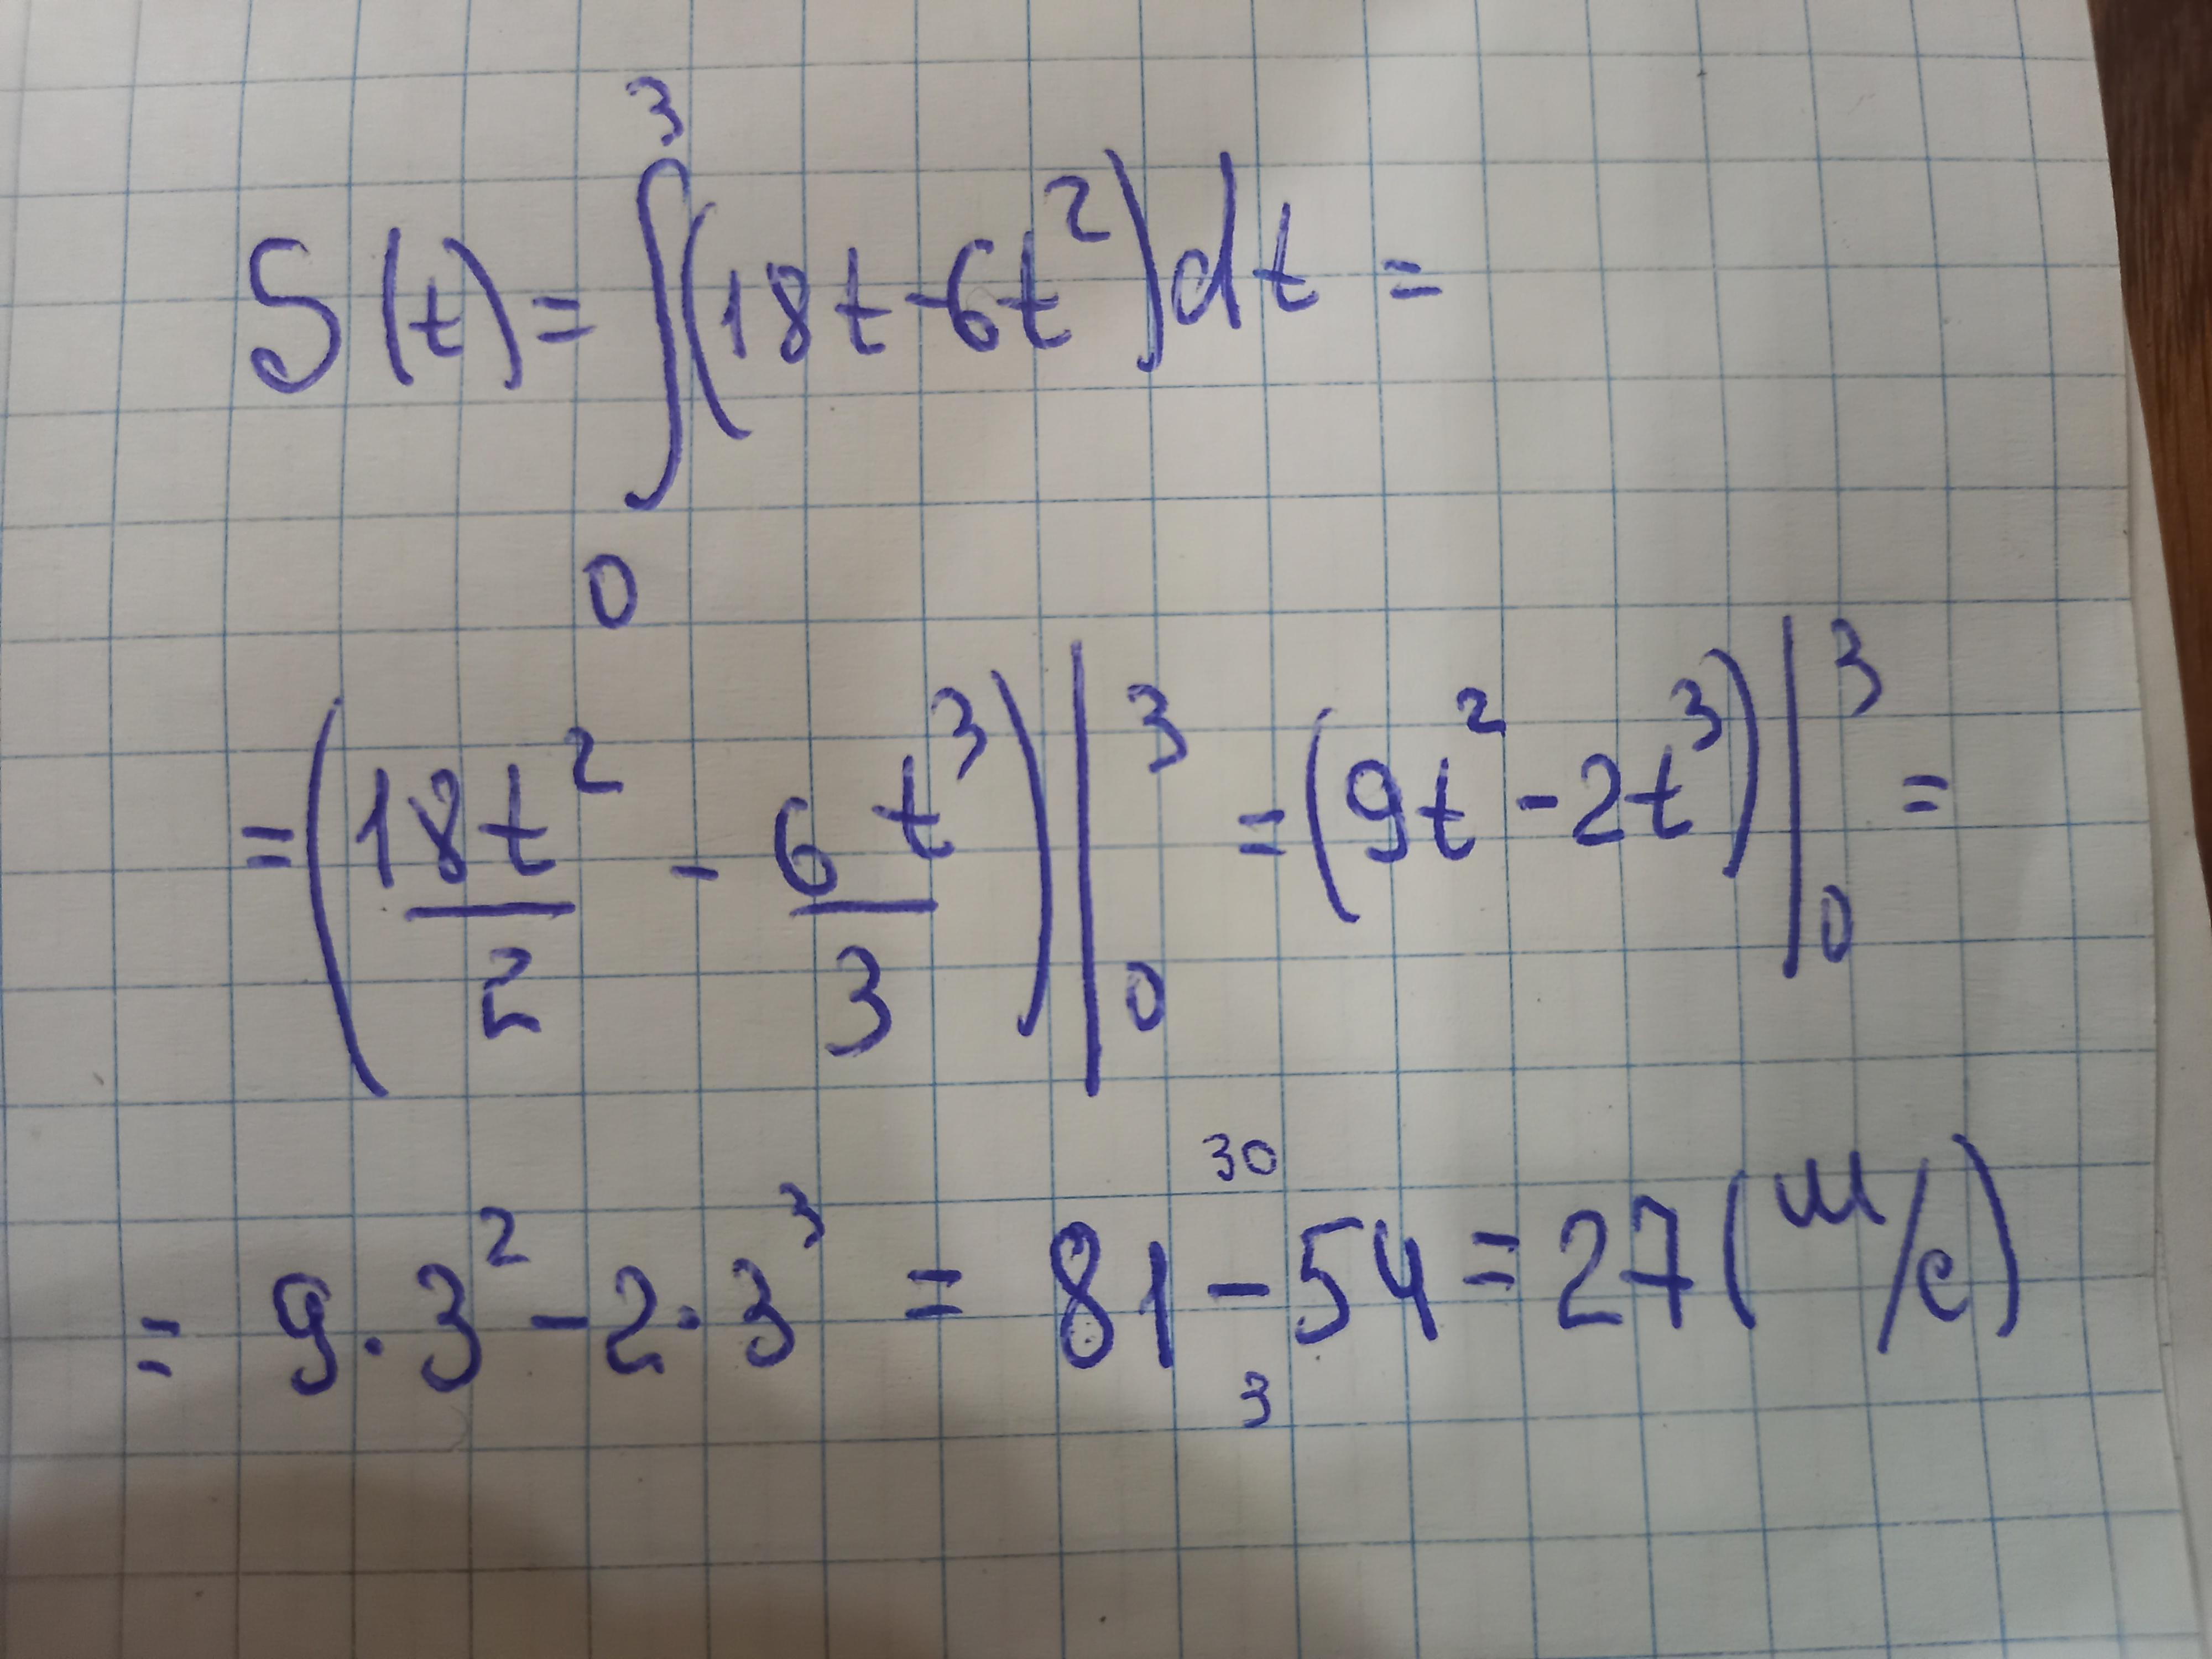 S(t) = ∫₀³ (18t - 6t²) dt =
= (18t²/2 - 6t³/3) |₀³ = (9t² - 2t³) |₀³ =
30
= 9 · 3² - 2 · 3³ = 81 - 54 = 27 (м/с)
3